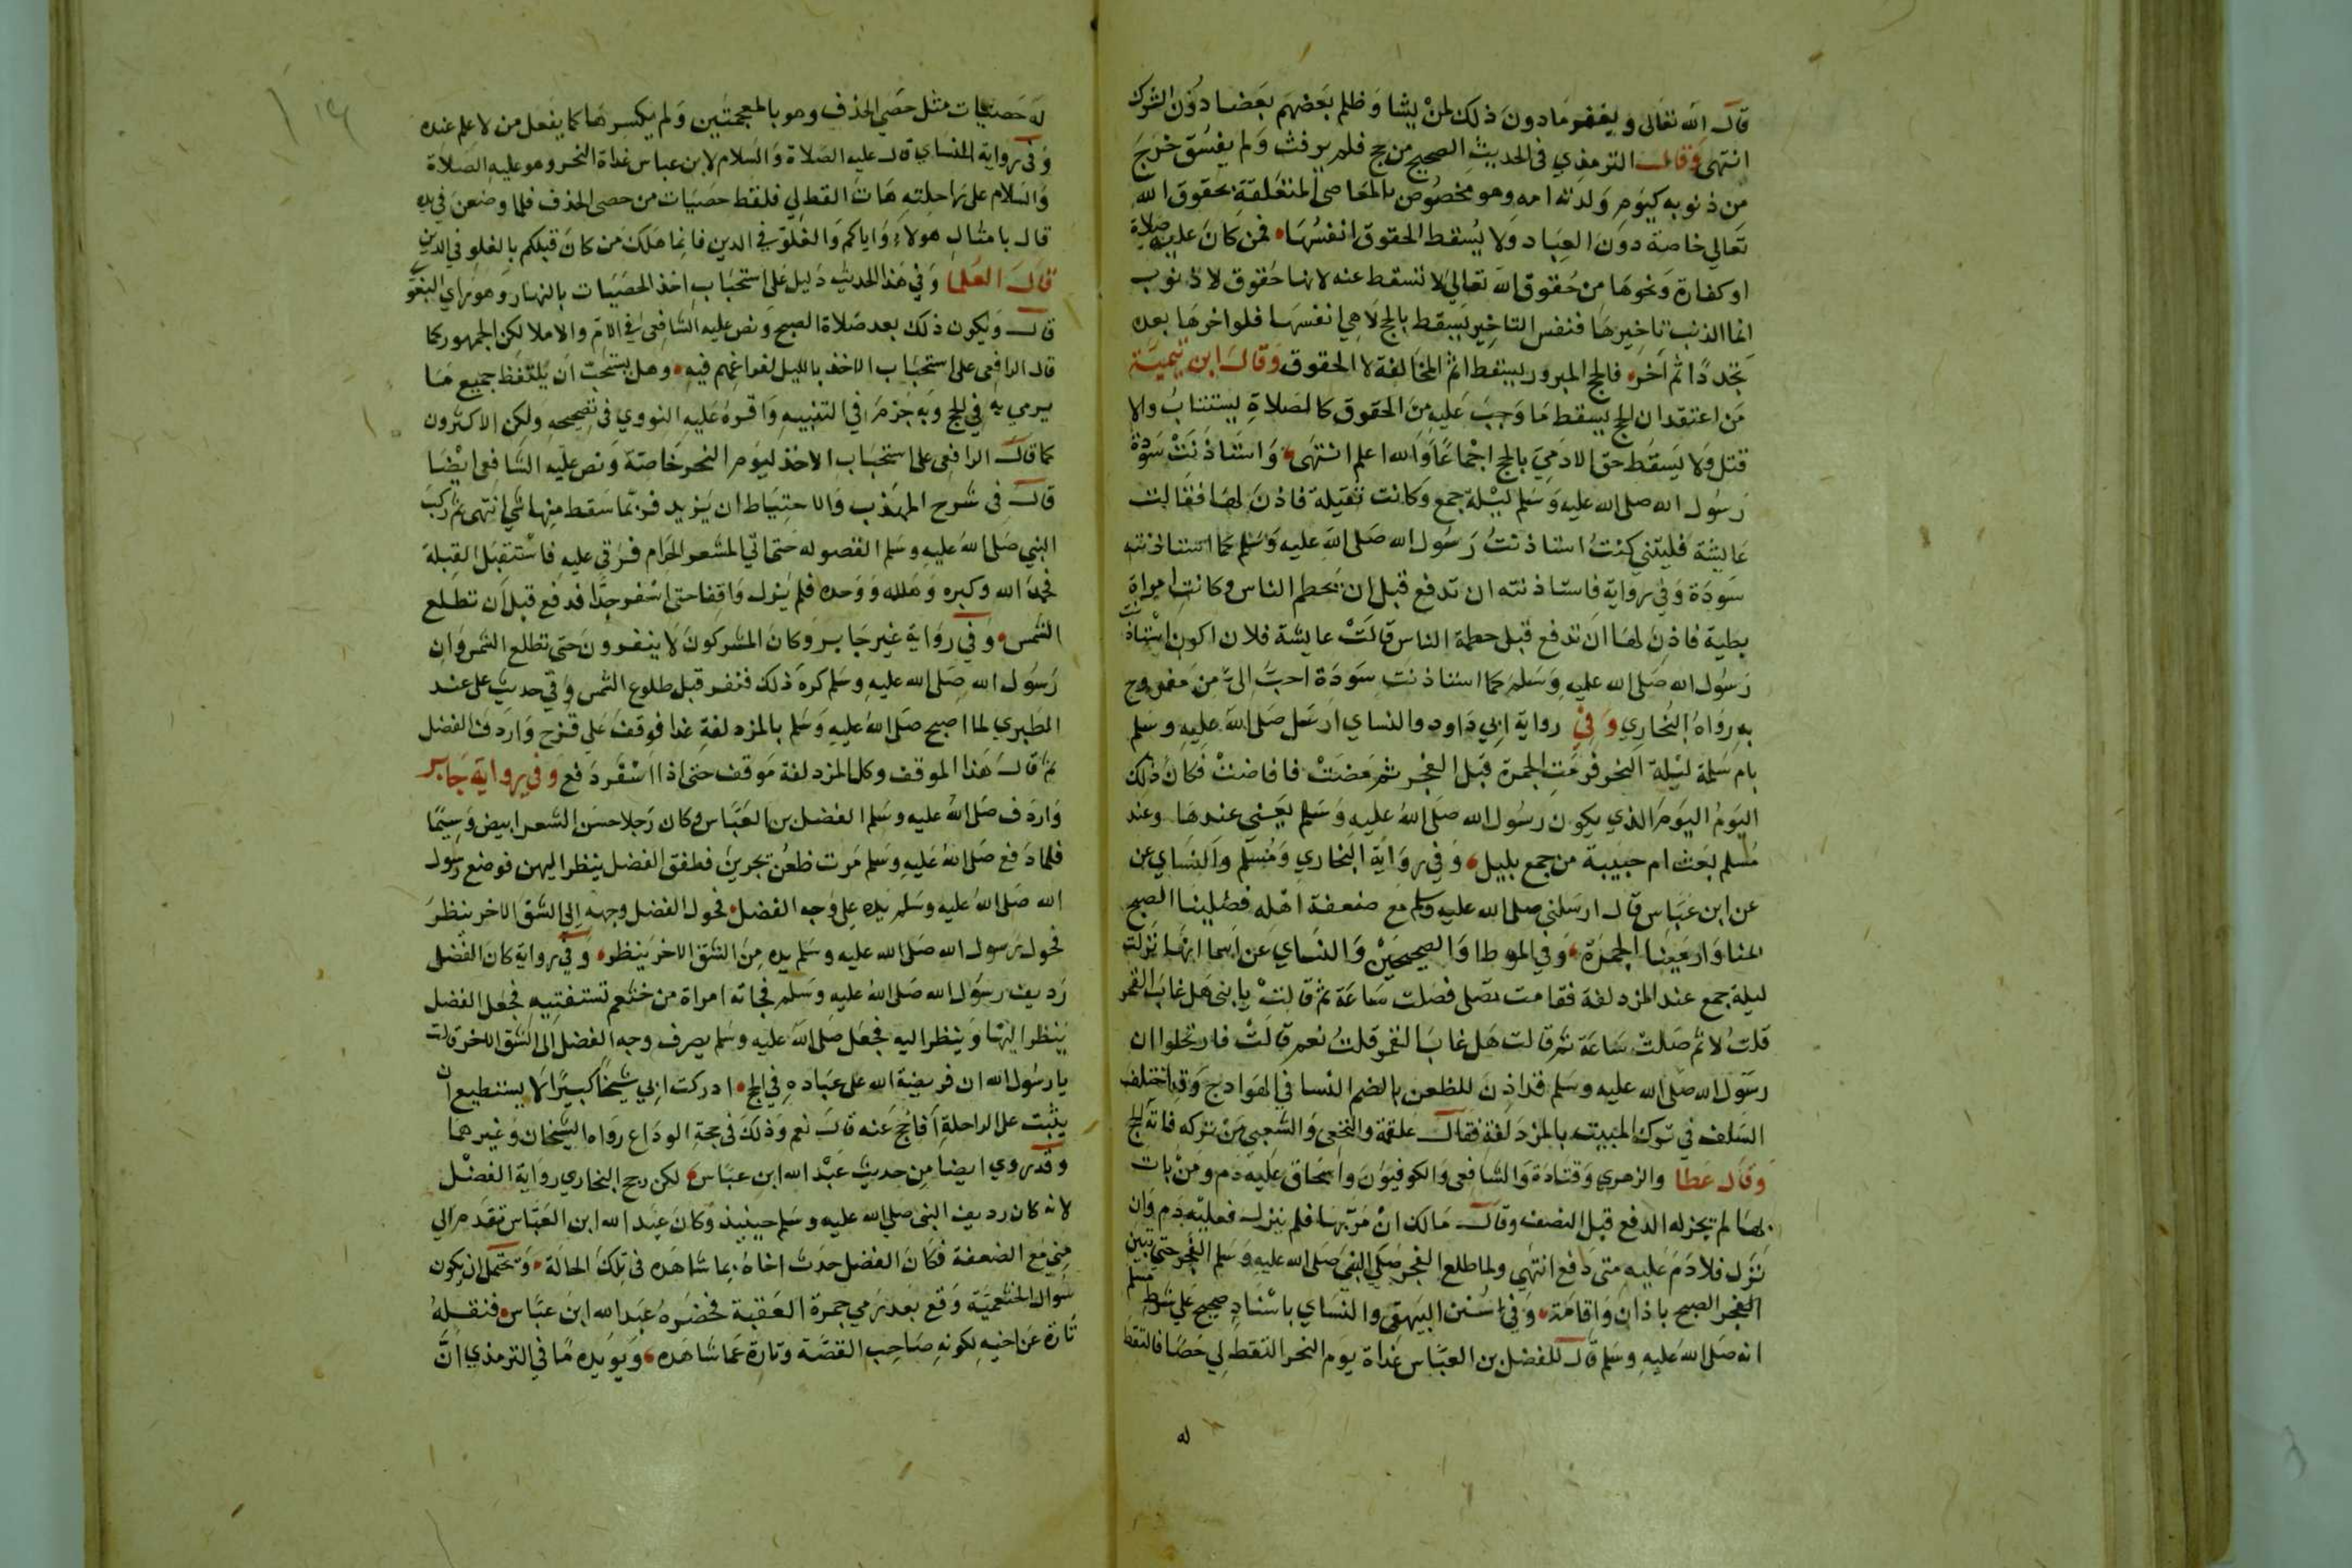 قال الله تعالى ويغفر ما دون ذلك لمن يشا وظلم بعضهم بعضا دون الشرك
انتهى وقال الترمذي في الحديث الصحيح من حج فلم يرفث ولم يفسق خرج
من ذنوبه كيوم ولدته امه وهو مخصوص بالمعاصي المتعلقة بحقوق الله
تعالي خاصة دون العباد ولا يسقط الحقوق انفسها فمن كان عليه صلاة
او كفارة ونحوها من حقوق الله تعالي لا تسقط عنه لانها حقوق لا ذنوب
انما الذنب تاخيرها فنفس التاخير يسقط بالحج لا هي انفسها فلو اخرها بعده
تجدد اثم اخر فالحج المبرور يسقط اثم المخالفة لا الحقوق وقال ابن تيمية
من اعتقد ان الحج يسقط ما وجب عليه من الحقوق كالصلاة يستتاب والا
قتل ولا يسقط حق الادمي بالحج اجماعا والله اعلم انتهى واستاذنت سودة
رسول الله صلى الله عليه وسلم ليلة جمع وكانت ثقيلة فاذن لها فقالت
عايشة فليتني كنت استاذنت رسول الله صلى الله عليه وسلم كما استاذنته
سودة وفي رواية فاستاذنته ان تدفع قبل ان يحطم الناس وكانت امراة
بطية فاذن لها ان تدفع قبل حطمة الناس قالت عايشة فلان اكون استاذنت
رسول الله صلى الله عليه وسلم كما استاذنت سودة احب الى من مفروح
به رواه البخاري وفي رواية ابي داود والنساي ارسل صلى الله عليه وسلم
بام سلمة ليلة النحر فرمت الجمرة قبل الفجر ثم مضت فافاضت فكان ذلك
اليوم اليوم الذي يكون رسول الله صلى الله عليه وسلم يعني عندها وعند
مسلم بعث ام حبيبة من جمع بليل وفي رواية البخاري ومسلم والنساي عن
عن ابن عباس قال ارسلني صلى الله عليه وسلم مع ضعفة اهله فصلينا الصبح
بمنا ورمينا الجمرة وفي الموطا والصحيحين والنساي عن اسما انها نزلت
ليلة جمع عند المزدلفة فقامت تصلي فصلت ساعة ثم قالت يا بني هل غاب القمر
قلت لا ثم صلت ساعة ثم قالت هل غاب القمر قلت نعم قالت فارتحلوا ان
رسول الله صلى الله عليه وسلم قد اذن للظعن بالضم النسا في الهوادج وقد اختلف
السلف في ترك المبيت بالمزدلفة فقال علقمة والنخعي والشعبي من تركه فاته الحج
وقال عطا والزهري وقتادة والشافعي والكوفيون واسحاق عليه دم ومن بات
بها لم يجز له الدفع قبل النصف وقال مالك ان مر بها فلم ينزل فعليه دم وان
نزل فلا دم عليه متى دفع انتهي ولما طلع الفجر صلي النبي صلى الله عليه وسلم الفجر حتي تبين
الفجر الصبح باذان واقامة وفي سنن البيهقي والنساي باسناد صحيح علي شرط مسلم
انه صلى الله عليه وسلم قال للفضل بن العباس غداة يوم النحر التقط لي حصا فالتقط
له
له حصيات مثل حصي الخذف وهو بالمعجمتين ولم يكسرها كما يفعل من لا علم عنده
وفي رواية النساي قال عليه الصلاة والسلام لابن عباس غداة النحر وهو عليه الصلاة
والسلام على راحلته هات القط لي فلقط حصيات من حصى الخذف فلما وضعن في يده
قال بامثال هولاء واياكم والغلو في الدين فانما هلك من كان قبلكم بالغلو في الدين
قال العلما وفي هذا الحديث دليل على استحباب اخذ الحصيات بالنهار وهو راي البغوي
قال ويكون ذلك بعد صلاة الصبح ونص عليه الشافعي في الام والاملا لكن الجمهور كما
قال الرافعي على استحباب الاخذ بالليل لفراغهم فيه وهل يستحب ان يلتقط جميع ما
يرمي به في الحج وبه جزم في التنبيه واقره عليه النووي في تصحيحه ولكن الاكثرون
كما قال الرافعي على استحباب الاخذ ليوم النحر خاصة ونص عليه الشافعي ايضا
قال في شرح المهذب والاحتياط ان يزيد فربما سقط منها شي انتهى ثم ركب
النبي صلى الله عليه وسلم القصوا حتى اتي المشعر الحرام فرقي عليه فاستقبل القبلة
فحمد الله وكبره وهلله ووحده فلم يزل واقفا حتى اسفر جدا فدفع قبل ان تطلع
الشمس وفي رواية غير جابر وكان المشركون لا ينفرون حتى تطلع الشمس وان
رسول الله صلى الله عليه وسلم كره ذلك فنفر قبل طلوع الشمس وفي حديث علي عند
الطبري لما اصبح صلى الله عليه وسلم بالمزدلفة غدا فوقف على قزح واردف الفضل
ثم قال هذا الموقف وكل المزدلفة موقف حتى اذا اسفر دفع وفي رواية جابر
واردف صلى الله عليه وسلم الفضل بن العباس وكان رجلا حسن الشعر ابيض وسيما
فلما دفع صلى الله عليه وسلم مرت ظعن يجرين فطفق الفضل ينظر اليهن فوضع رسول
الله صلى الله عليه وسلم يده على وجه الفضل فحول الفضل وجهه الى الشق الاخر ينظر
فحول رسول الله صلى الله عليه وسلم يده من الشق الاخر ينظر وفي رواية كان الفضل
رديف رسول الله صلى الله عليه وسلم فجاته امراة من خثعم تستفتيه فجعل الفضل
ينظر اليها وينظر اليه فجعل صلى الله عليه وسلم يصرف وجه الفضل الى الشق الاخر قالت
يا رسول الله ان فريضة الله على عباده في الحج ادركت ابي شيخا كبيرا لا يستطيع ان
يثبت على الراحلة أفاحج عنه قال نعم وذلك في حجة الوداع رواه الشيخان وغيرهما
وقد روي ايضا من حديث عبد الله ابن عباس لكن رجح البخاري رواية الفضل
لانه كان رديف النبي صلي الله عليه وسلم حينيذ وكان عبد الله ابن العباس تقدم الي
مني مع الضعفة فكان الفضل حدث اخاه بما شاهده في تلك الحالة ويحتمل ان يكون
سوال الخثعمية وقع بعد رمي جمرة العقبة فحضره عبد الله ابن عباس فنقله
تارة عن اخيه لكونه صاحب القصة وتارة عما شاهده ويويده ما في الترمذي ان